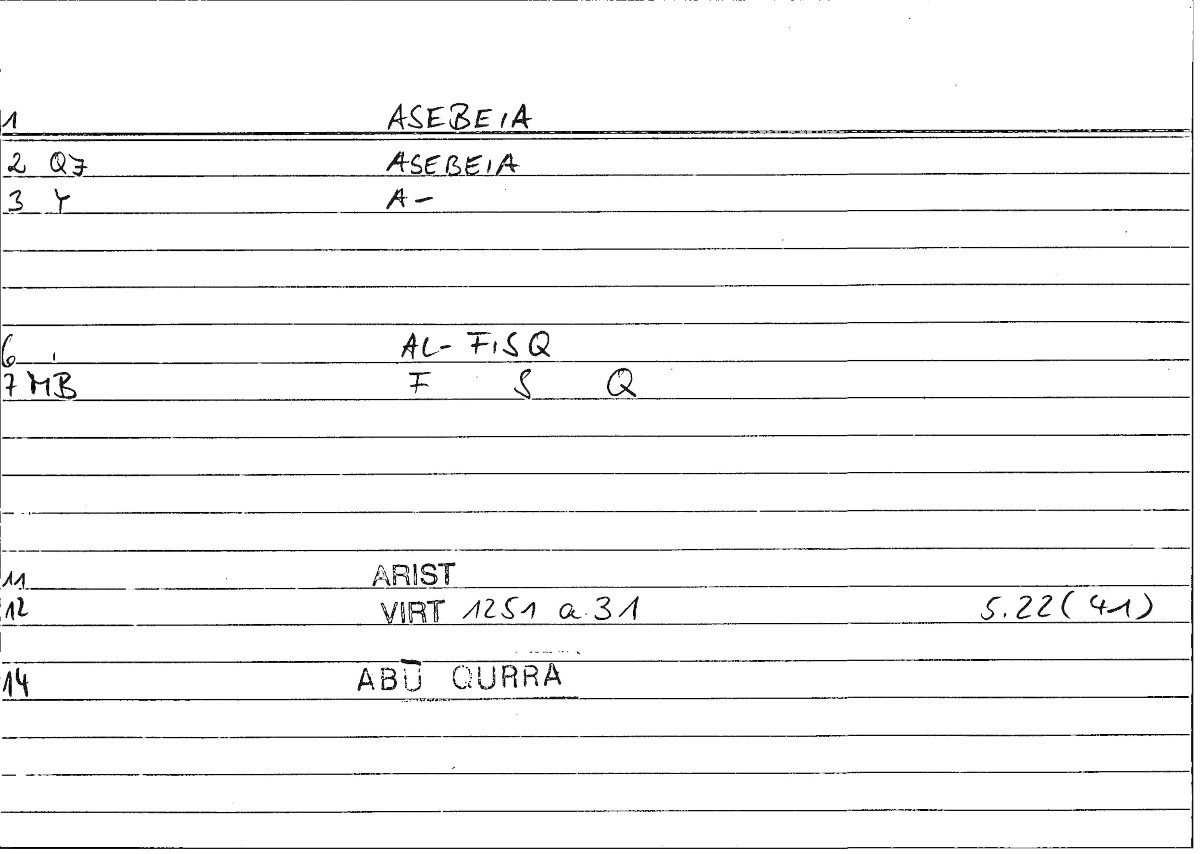 1 ASEBEIA
2 Q7 ASEBEIA
3 Y A-
6 AL-FISQ
7 MB F S Q
11 ARIST
12 VIRT 1251 a 31 5.22(41)
14 ABŪ QURRA